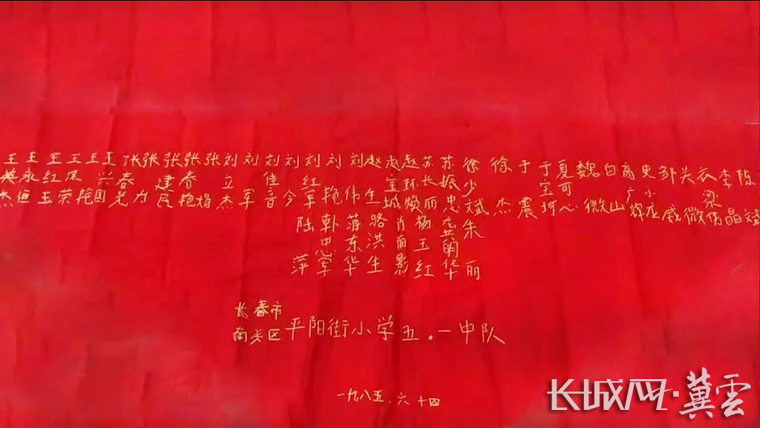 王 王 王 王 王 王 张 张 张 张 张 刘 刘 刘 刘 刘 刘 刘 赵 赵 赵 苏 苏 徐 徐 于 于 夏 魏 白 高 史 邹 关 衣 李 陈
永 红 杰 兴 春 建 春 立 佳 红 宝 环 长 振 少 宝 可 广 小 梁
杰 恒 玉 荣 艳 国 光 力 民 艳 娟 杰 军 音 今 军 艳 伟 生 城 焕 丽 忠 斌 杰 震 珂 心 微 山 辉 龙 威 微 伟 晶 斌
陆 韩 薄 路 肖 杨 孟 朱
忠 东 洪 南 玉 明
萍 军 华 生 影 红 华 丽
长春市
南关区平阳街小学五.一中队
一九八五.六.十四
长城网·冀云